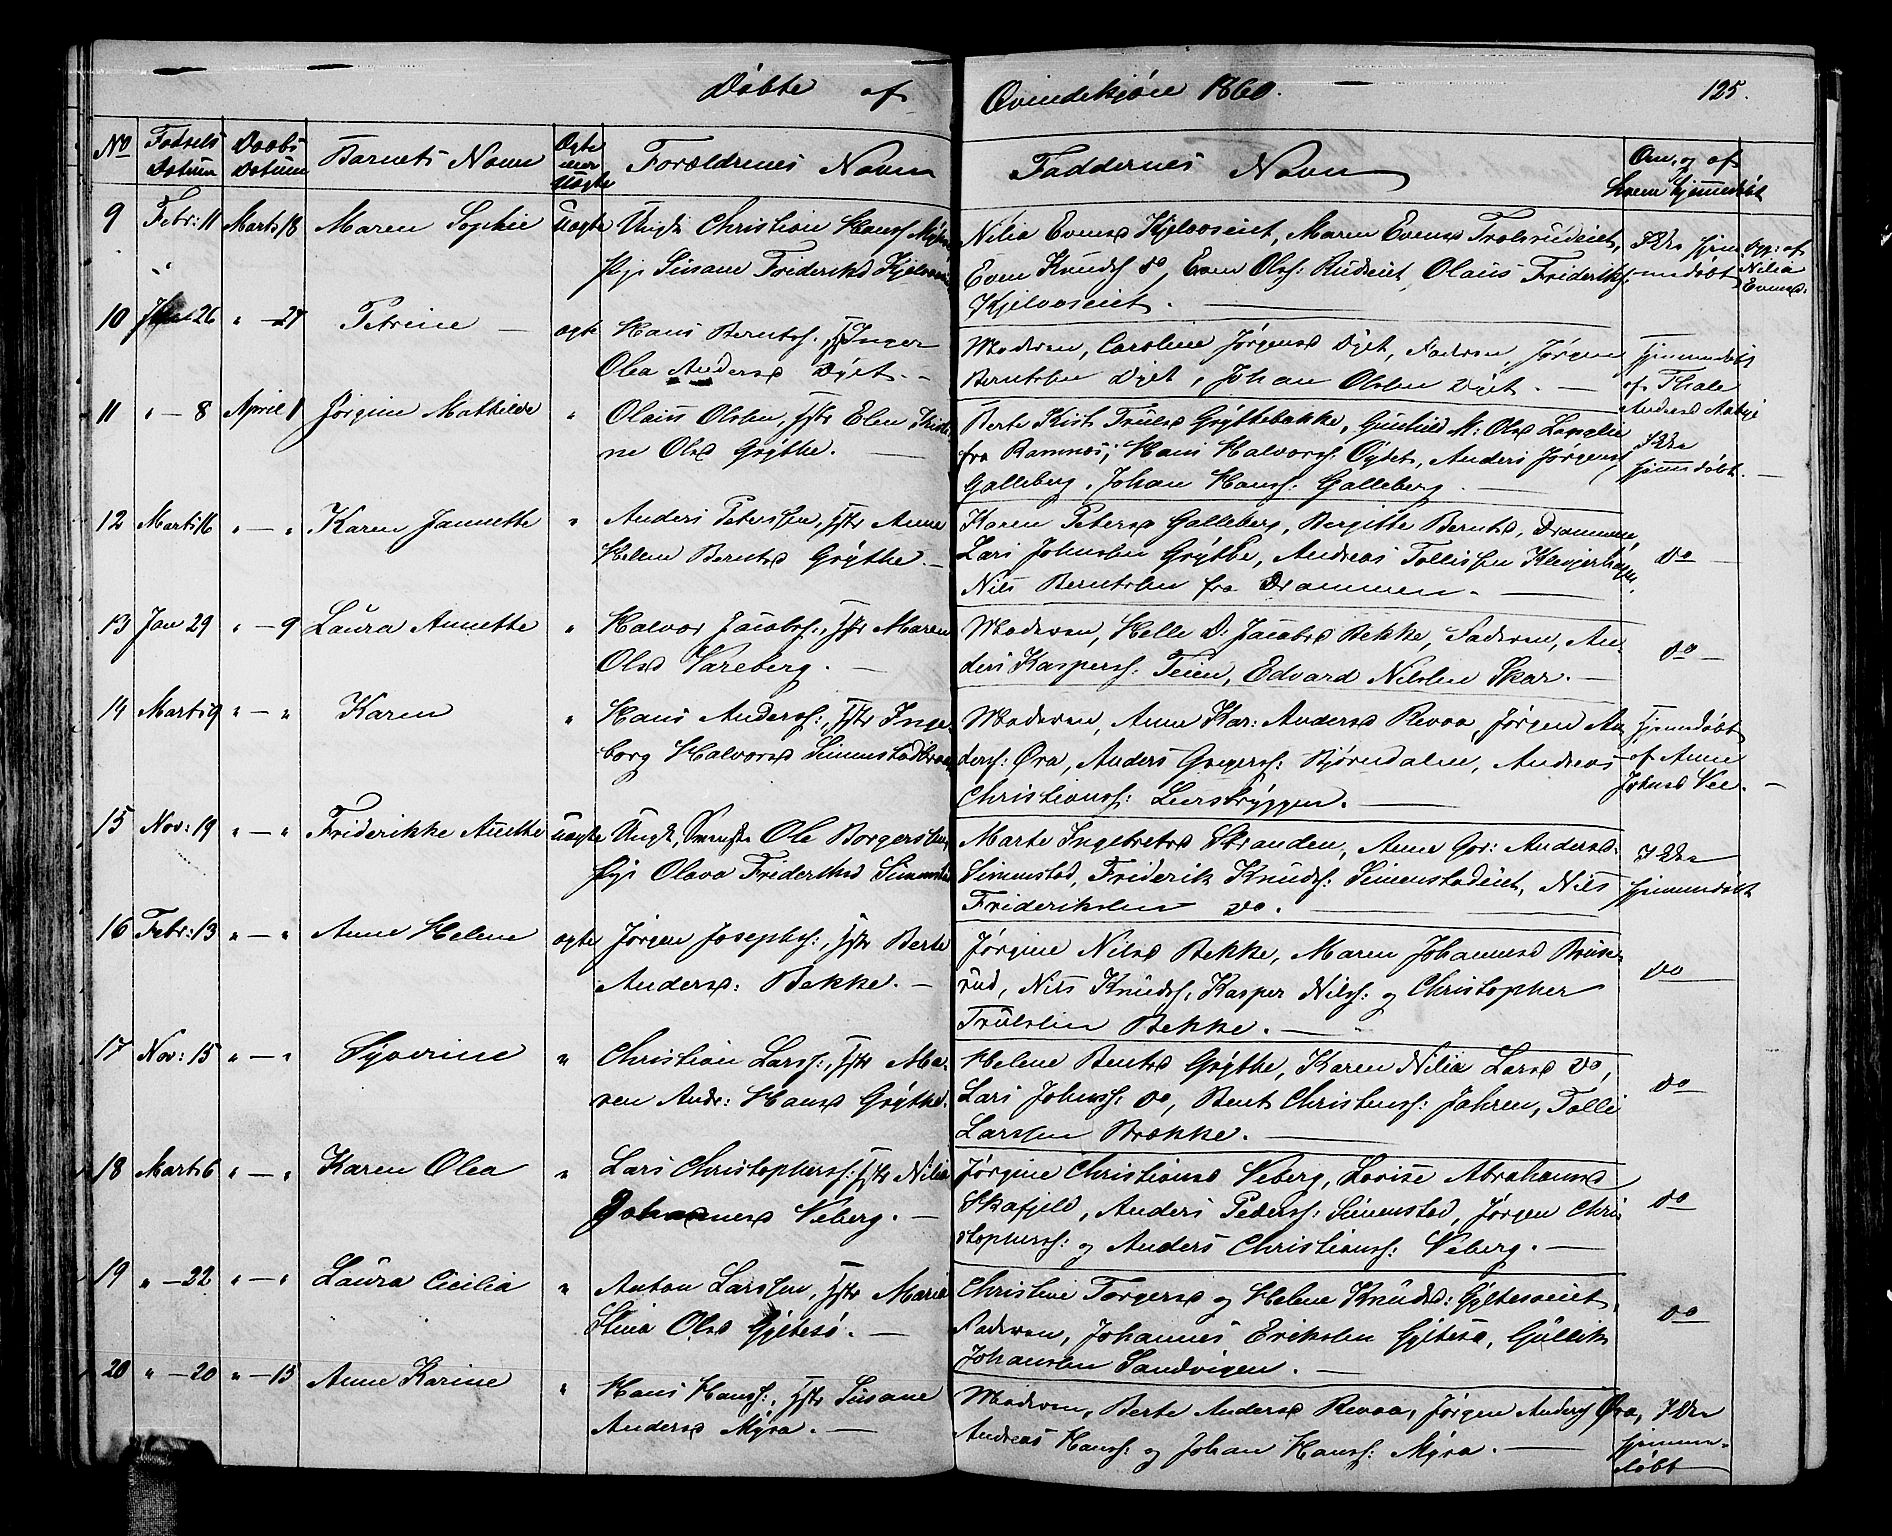 Døbte af
Qvindekjön 1860.
125.
No
Fødsels Datum
Daabs Datum
Barnets Navn
Ægte eller Uægte
Forældrenes Navn
Faddernes Navn
Om, og af hvem hjemmedøbt
9 Febr: 11 Marts 18 Maren Sophie Uægte Ungk. Christian Hanss.
Pige Susane Frideriksd
Nilia Evensd Kjelaaseiet, Maren Evensd Trolsrudeiet,
Even Knuds. do, Even Ols: Rudeiet, Olaus Frideriks:
Kjelaaseiet.
Ikke hjemmedøbt
opg: af Nilia Evensd:
10 26 " - 27 Petrine ægte Hans Bernts., Hstr Inger
Olea Andersd Døiet.
Moderen, Caroline Jørgensd Døiet, Faderen, Jørgen
Berntsen Døiet, Johan Olsen Døiet.
Hjemmedøbt
af Thale
Andersd
11 " - 8 April 1 Jørgine Mathilde " Olaus Olsen, Hstr Elen Kristi-
ne Olsd Grythe.
Berte Krist. Trulsd Grÿttebakke, Gunhild M: Olsd
fra Ramnes, Hans Halvors: Anders Jørgens.
Galleberg, Johan Hans: Galleberg.
Ikke
hjemmedøbt.
12 Marts 16 " - " Karen Jannette " Anders Peterssen, Hstr Anne
Helene Berntsd Grÿthe.
Karen Petersd Galleberg, Birgitte Berntsd, Drammen,
Lars Johnsen Grÿthe, Andreas Tollefssen
Nils Berntsen fra Drammen.
do
13 Jan 29 " - 9 Laura Annette " Halvor Jacobs:, Hstr Maren
Olsd Vareberg.
Moderen, Helle D: Jacobsd Bekke, Faderen, An-
ders Kaspers: Teien, Edvard Nilsen Skar.
do
14 Marts 9 " - " Karen " Hans Anderss:, Hstr Inge-
borg Halvorsd
Moderen, Anne Kar: Andersd Revaa, Jørgen An-
derss: Øra, Anders Gregers: Bjørndalen, Andreas
Christians: Leersbrÿggen.
Hjemmedøbt
af Anne
Johnsd Vee.
15 Nov: 19 " - " Friderikke Anette Uægte Ungk, Svenske Ole Borgerssen,
Pige Olava Frideriksd
Marte Ingebretsd Stranden, Anne Gor: Andersd
Simenstad, Friderik Knuds: Simenstadeiet, Nils
Frideriksen do.
Ikke
hjemmedøbt
16 Febr: 13 " - " Anne Helene ægte Jørgen Josephs:, Hstr Berte
Andersd: Bekke.
Jørgine Nilsd Bekke, Maren Johannesd
rud, Nils Knuds:, Kasper Nils: og Christopher
Trulsen Bekke.
do
17 Nov: 15 " - " Syverine " Christian Larss:, Hstr Ma-
ren Andr: Hansd Grÿthe.
Helene Bentsd Grÿthe, Karen Nilia Larsd do,
Lars Johns: do, Bent Christenss: Jahren, Tolle
Larssen Brække.
do
18 Marts 6 " - " Karen Olea " Lars Christophers: Hstr Nilia
Johannesd Veberg.
Jørgine Christiansd Veberg, Lovise Abrahamsd
Skafjeld, Anders Peders: Simenstad, Jørgen Chri-
stophers: og Anders Christians: Veberg.
do
19 " - 22 " - " Laura Cicilia " Anton Larssen, Hstr Maren
Stina Olsd Gjeltesø.
Christine Torgersd og Helene Knudsd:
Faderen, Johannes Eriksen Gjeltesø, Gullik
Johansen Sandvigen.
do
20 " - 20 " - 15 Anne Karine " Hans Hans:, Hstr Susane
Andersd Mÿra.
Moderen, Berte Andersd Revaa, Jørgen Anders. Øra,
Andreas Hans: og Johan Hans: Mÿra.
Ikke
hjemme-
døbt